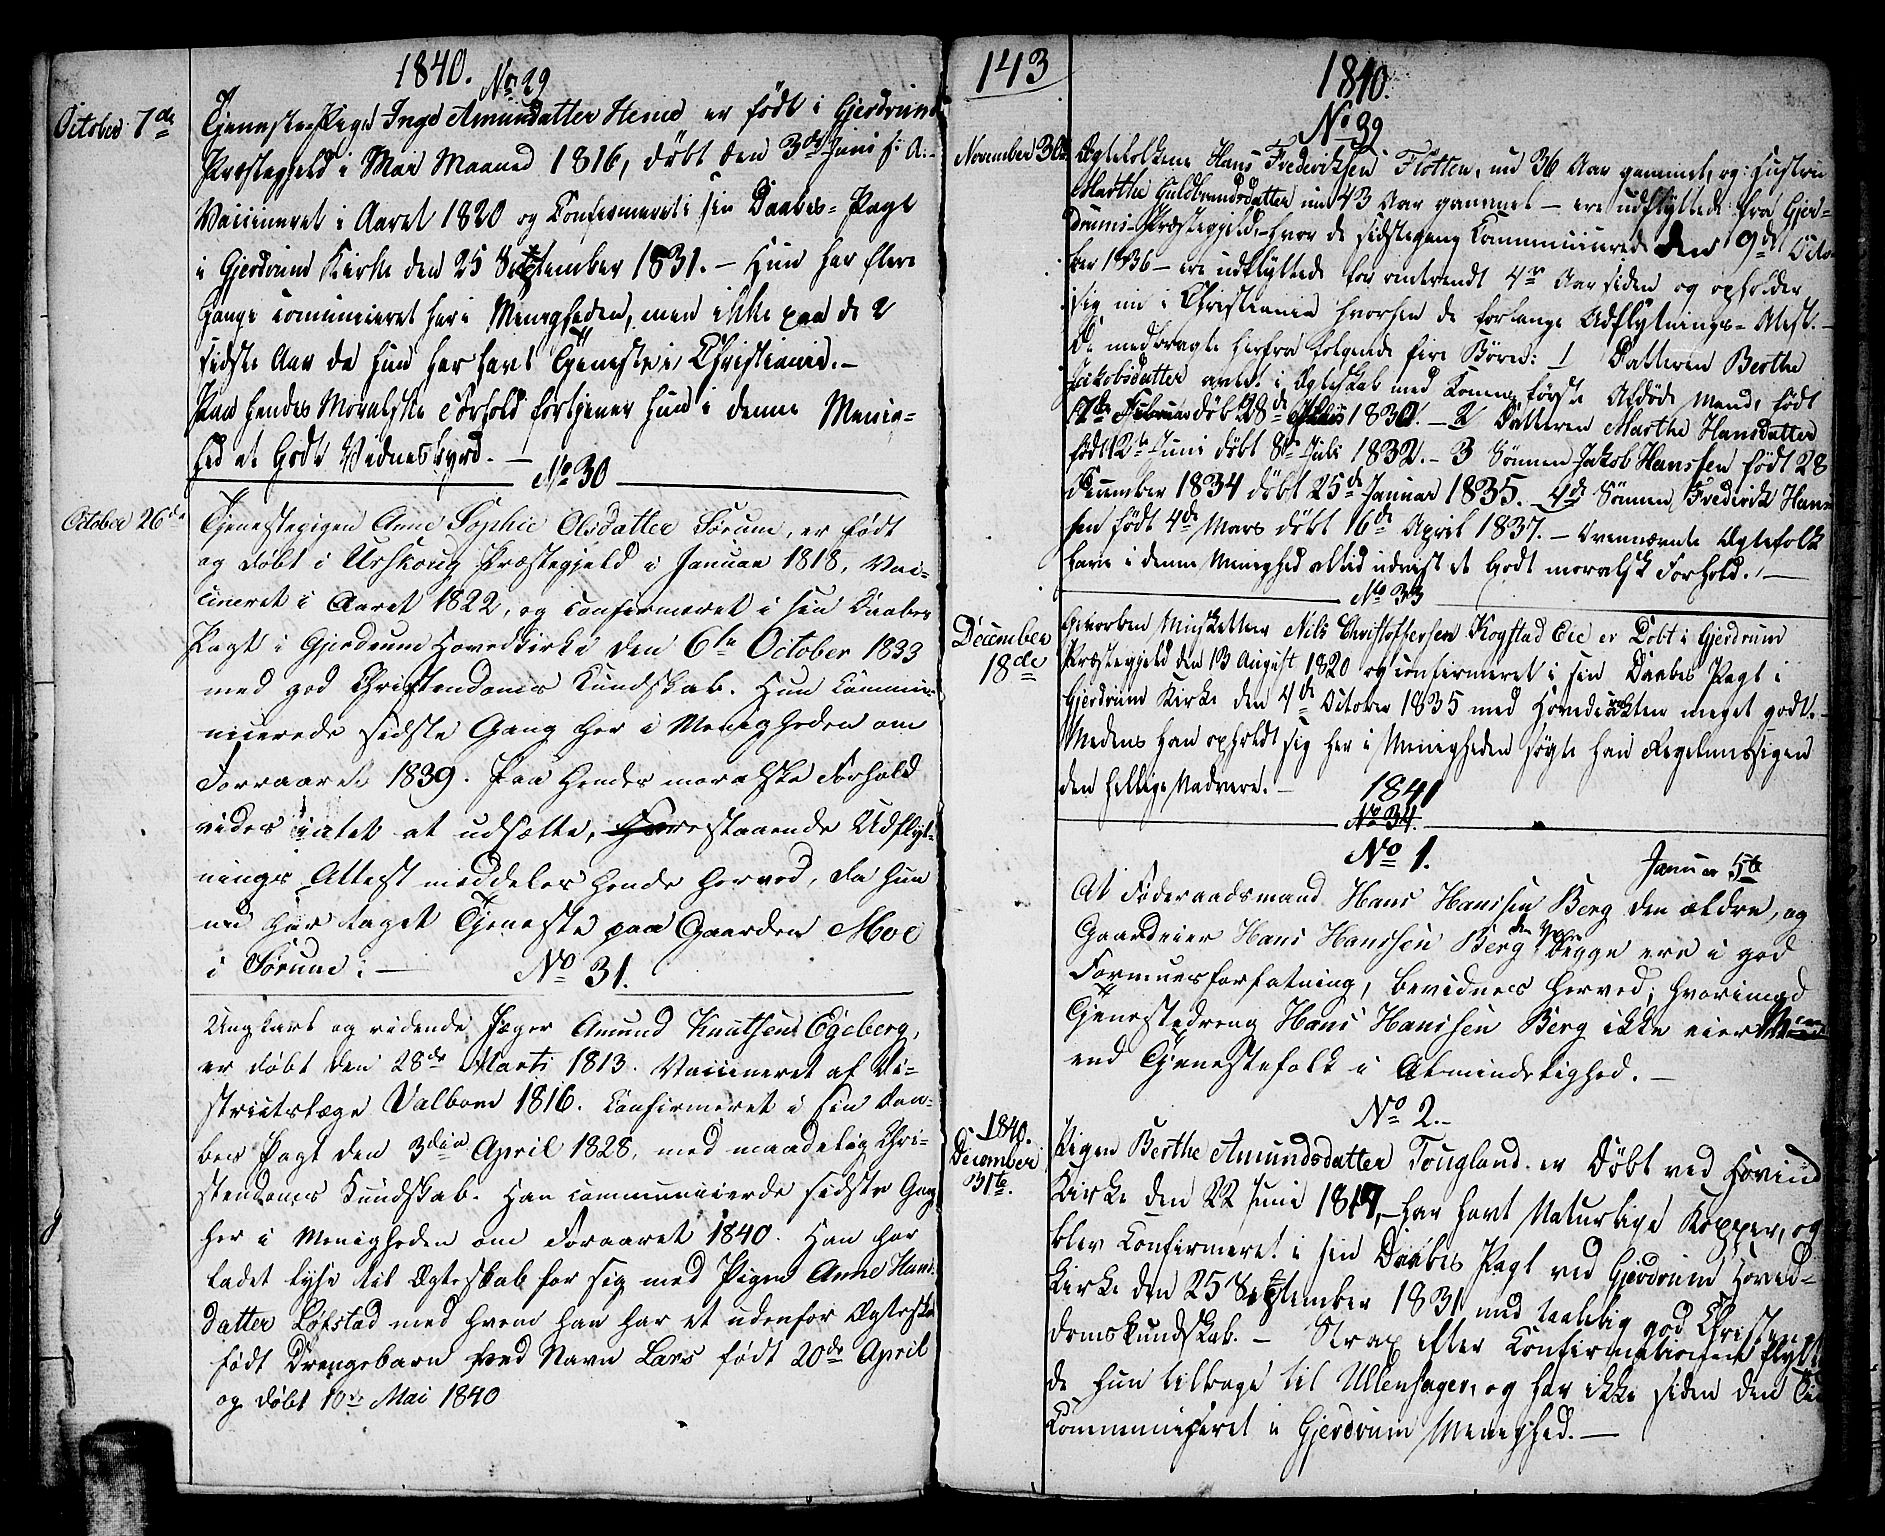 1840.
No 29
October 7de
Tjeneste-Pige Inge Amundatter Heni er født i Gjerdrums
Præstegjeld i Mai Maaned 1816, døbt den 3de Juni s: A:-
Vaccineret i Aaret 1820 og Confirmeret i sin Daabes-Pagt
i Gjerdrum Kirke den 25 September 1831. - Hun har flere
Gange comuniceret her i Menigheden, men ikke paa de 2
sidste Aar da hun har havt Tjeneste i Christiania. -
Paa hendes Moralske Forhold fortjener hun i denne Menig-
hed et Godt Vidnesbyrd. -
No 30
October 26de
Tjenestepigen Anne Sophie Olsdatter Sørum, er født
og døbt i Urskoug Præstegjeld i Januar 1818, Vac-
cineret i Aaret 1822, og confirmeret i sin Daabes
Pagt i Gjerdrum Hovedkirke den 6te October 1833
med god Christendoms Kundskab. Hun commu-
nicerede sidste Gang her i Menigheden om
Foraaret 1839. Paa hendes moralske Forhold
vides intet at udsætte, Forestaaende Udflyt-
nings Attest meddeles hende herved, da hun
nu har taget Tjeneste paa Gaarden Moe
i Sørum: -
No 31.
Ungkarl og ridende Jæger Amund Knutsen Egeberg,
er døbt den 28de Marts 1813. Vaccineret af Di-
strictslæge Dalbom 1816. Confirmeret i sin Daa-
bes Pagt den 3die April 1828, med maadelig Chri-
stendoms Kundskab. Han communicerede sidste Gag
her i Menigheden om Foraaret 1840. Han har
ladet lyse til Ægteskab for sig med Pigen Anne Hans
datter Løkstad med hvem han har et udenfor Ægteska
født Drengebarn ved Navn Lars født 20de April
og døbt 10de Mai 1840
143
1840.
No 32
November 30te
Ægtefolkene Hans Fredriksen Flotten, nu 36 Aar gammel, og Hustru
Marthe Guldbrandsdatter nu 43 Aar gammel - ere udflyttede fra Gjer-
drums-Præstegjeld, - hvor de sidstegang Kommunicerede den 9de Octo-
ber 1836 - ere udflyttede for omtrendt 4re Aar siden og opholder
sig nu i Christiania hvorhen de forlange Udflytnings-Attest. -
De medbragte herfra følgende fire Børn: 1 Datteren Berthe
Jakobsdatter avlet i Ægteskab med Konens første Afdøde Mand, født
17de Februar døbt 28de 1830. - 2 Datteren Marthe Hansdatter
født 12te Juni døbt 8de Juli 1832. - 3 Sønnen Jakob Hanssen født 28
December 1834 døbt 25de Januar 1835. - 4de Sønnen Fredirik Hans
sen født 4de Mars døbt 16de April 1837. - Ovennævnte Ægtefolk
have i denne Menighed altid udvist et Godt moralsk Forhold. -
No 33
December
18de
Gevorben Musketteer Nils Christoffersen Kogstad Eie er Døbt i Gjerdrum
Præstegjeld den 13 August 1820 og confirmeret i sin Daabes Pagt i
Gjerdrum Kirke den 4de October 1835 med Hovedcarakteer meget godt. -
Medens han opholdt sig her i Menigheden søgte han Regelmessigen
den hellige Nadvere. -
1841
No 34.
No 1.
Januar 5te
At Føderaadsmand Hans Hanssen Berg den ældre, og
Gaardeier Hans Hanssen Berg den Yngre begge ere i god
Formuesforfatning, bevidnes herved; hvorimod
Tjenestedreng Hans Hanssen Berg ikke eier Mere
end Tjenestefolk i Almindelighed. -
No 2.-
1840.
December
31te.
Pigen Berthe Amundsdatter Tougland er Døbt ved Hovind
Kirke den 22 Juni 1817, - har havt Naturlige Kopper, og
blev Confirmeret i sin Daabes Pagt ved Gjerdrum Hoved-
Kirke den 25 September 1831 med taalelig god Christen-
domskundskab. - Strax efter Confirmationen flytte
de hun tilbage til Ullensager, og har ikke siden den Tid
Communiceret i Gjerdrum Menighed. -